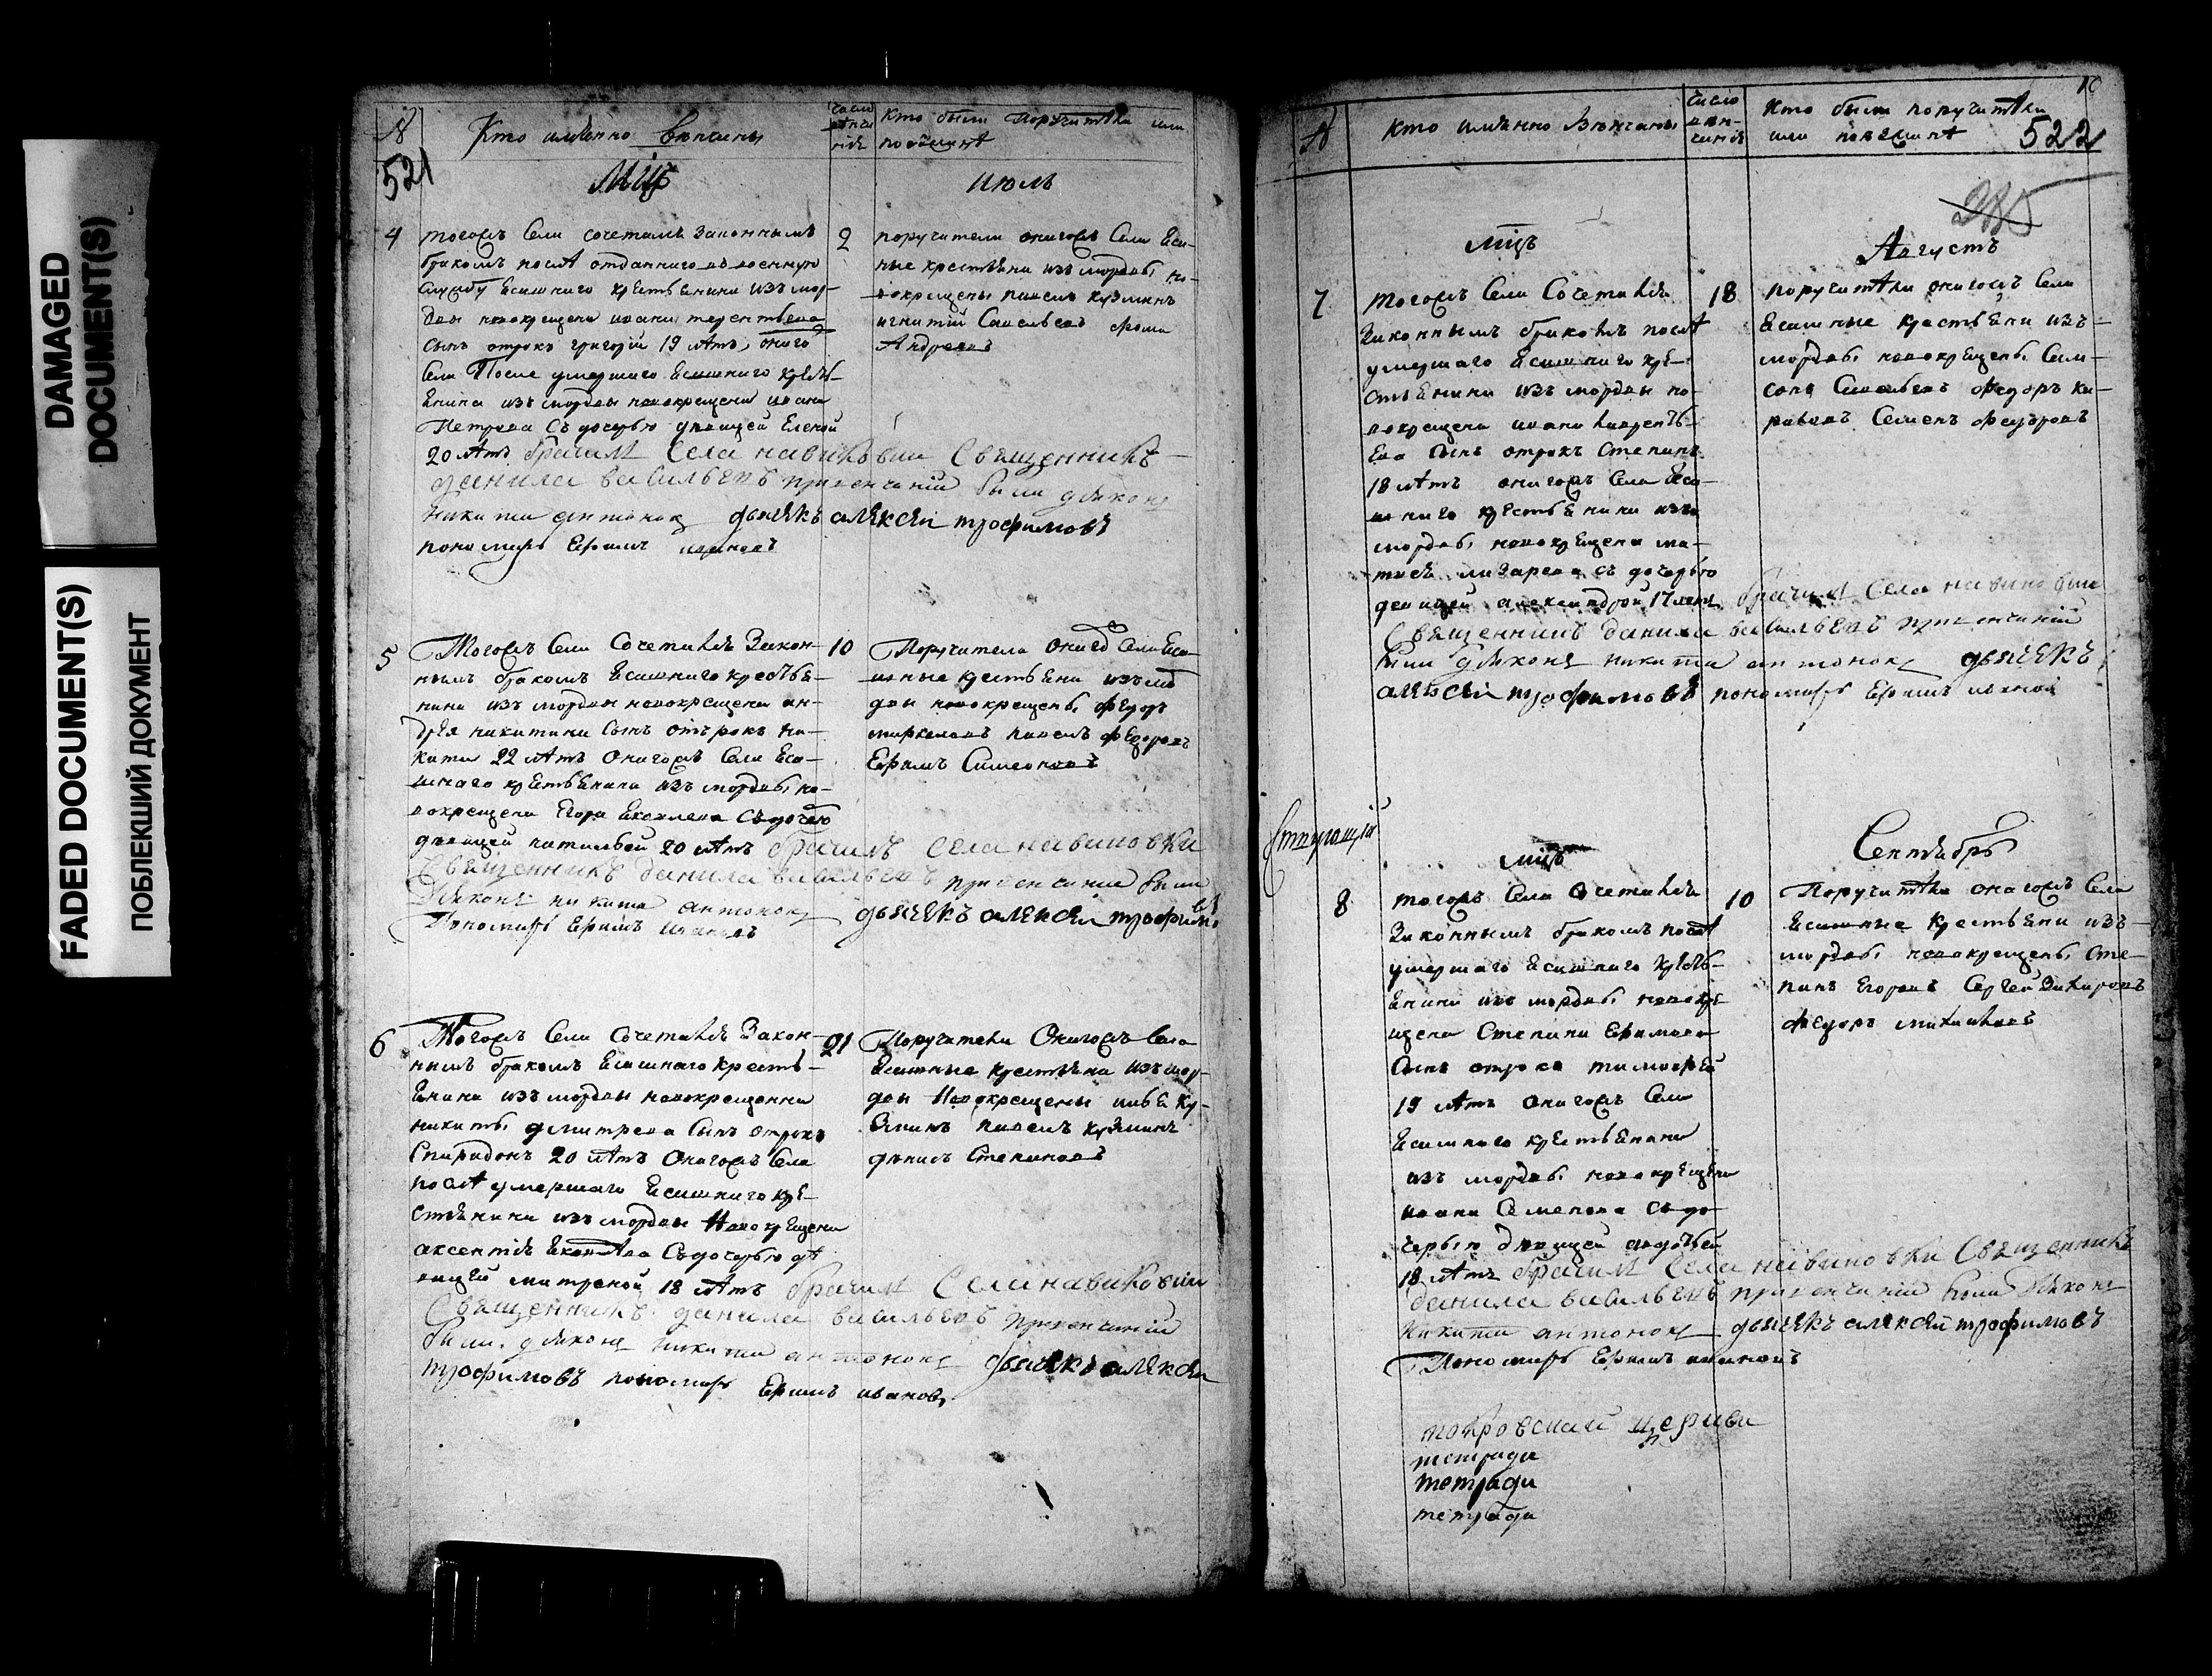 DAMAGED
DOCUMENT(S)
FADED DOCUMENT(S)
ПОБЛЕКШИЙ ДОКУМЕНТ
№
Кто имянно венчаны
Кто были поручители или
521
мцъ
Июль
4
тогожъ Села сочетались Законнымъ
2
бракомъ послѣ отданнаго въ военную
службу Ясашнаго крестьянина изъ мор-
двы новокрещена ивана терентьева
сынъ отрокъ григорій 19 лѣтъ, оного
Села После умершаго Ясашнаго крестъ-
Янина изъ мордвы новокрещена ивана
Петрова Съ дочерью девицей Еленой
20 лѣтъ брачил Села навиковки Священникъ
данила васильевъ привенчаніи были дьяконъ
никита антоновъ дьячекъ алексей трофимовъ
пономарь Ефимъ ивановъ
поручители оногожъ Села Яса-
ные крестьяни изъ мордвы но-
вокрещены павелъ кузминъ
игнатій Савельевъ фома
Андреевъ
5
Тогожъ Села Сочетались Закон-
10
нымъ бракомъ Ясашнаго крестья-
нина изъ мордвы новокрещена ан-
дрея никитина Сынъ отърокъ ни-
кита 22 лѣтъ Оногожъ Села Яса-
шнаго крестьянина изъ мордвы но-
вокрещена Егора Яковлева Съ дочерью
девицей натальей 20 лѣтъ брачилъ Села навиковки
Священникъ данила васильевъ привенчание были
Дьяконъ никита антоновъ дьячекъ алексей трофимовъ
Пономарь Ефимъ Ивановъ
Поручители Оного Села Яса-
шные крестьяни изъ мор
двы новокрещены федоръ
маркеловъ павелъ федоровъ
Ефимъ Симеоновъ
6
Тогожъ Села Сочетались Закон-
21
нымъ бракомъ Ясашнаго кресть-
Янина изъ мордвы новокрещенна
никиты дмитрева Сынъ отрокъ
Спиридонъ 20 лѣтъ Оногожъ Села
послѣ умершаго Ясашнаго кре-
стьянина изъ мордвы Новокрещена
аксентія Съ дочерью дѣ
вицей матреной 18 лѣтъ брачил Села навиковки
Священникъ данила васильевъ привенчаніи
были дьяконъ никита антоновъ дьячекъ алексей
трофимовъ пономарь Ефимъ ивановъ
Поручители Оногожъ Села
Ясашные крестьяна изъ мор-
двы Новокрещены Ку-
Зминъ павелъ кузминъ
Степановъ
10
№
Кто имянно Вѣнчаны
Число
вен-
чанія
Кто были поручители
или
522
мцъ
Августъ
7
тогожъ Села Сочетались
18
Законнымъ бракомъ послѣ
умершаго Ясашнаго кре-
стьянина изъ мордвы но-
вокрещена ивана лаврентъ-
Ева Сынъ отрокъ Степанъ
18 лѣтъ оногожъ Села Яса-
шнаго крестьянина изъ
мордвы новокрещена ма-
твея лазарева съ дочерью
девицей александрой 17 летъ брачил Села навиковки
Священникъ данила васильевъ привенчаніи
были дьяконъ никита антоновъ дьячекъ
алексей трофимовъ пономарь Ефимъ ивановъ
поручители оногожъ Села
Ясашные крестьяни изъ-
мордвы новокрещены Сам-
сонъ Савельевъ федоръ ки-
риловъ Семенъ федоровъ
мцъ
Сентябрь
8
тогожъ Села Сочетались
10
Законнымъ бракомъ послѣ
умершаго Ясашнаго крестъ-
Янина изъ мордвы новокре
щена Степана Ефимова
Сынъ отрокъ тимофей
19 лѣтъ оногожъ Села
Ясашнаго крестьянина
изъ мордвы новокрещена
ивана Семенова Съ до-
черью девицей авдотьей
18 лѣтъ брачил Села навиковки Священникъ
данила васильевъ привенчаніи были Дьяконъ
Никита антоновъ дьячекъ алексей трофимовъ
Пономарь Ефимъ ивановъ
Поручители оногожъ Села
Ясашные крестьяни изъ-
мордвы новокрещены Сте-
панъ Егоровъ Сергей Захаровъ
федоръ михайловъ
покровскай церкви
тетради
тетради
тетради